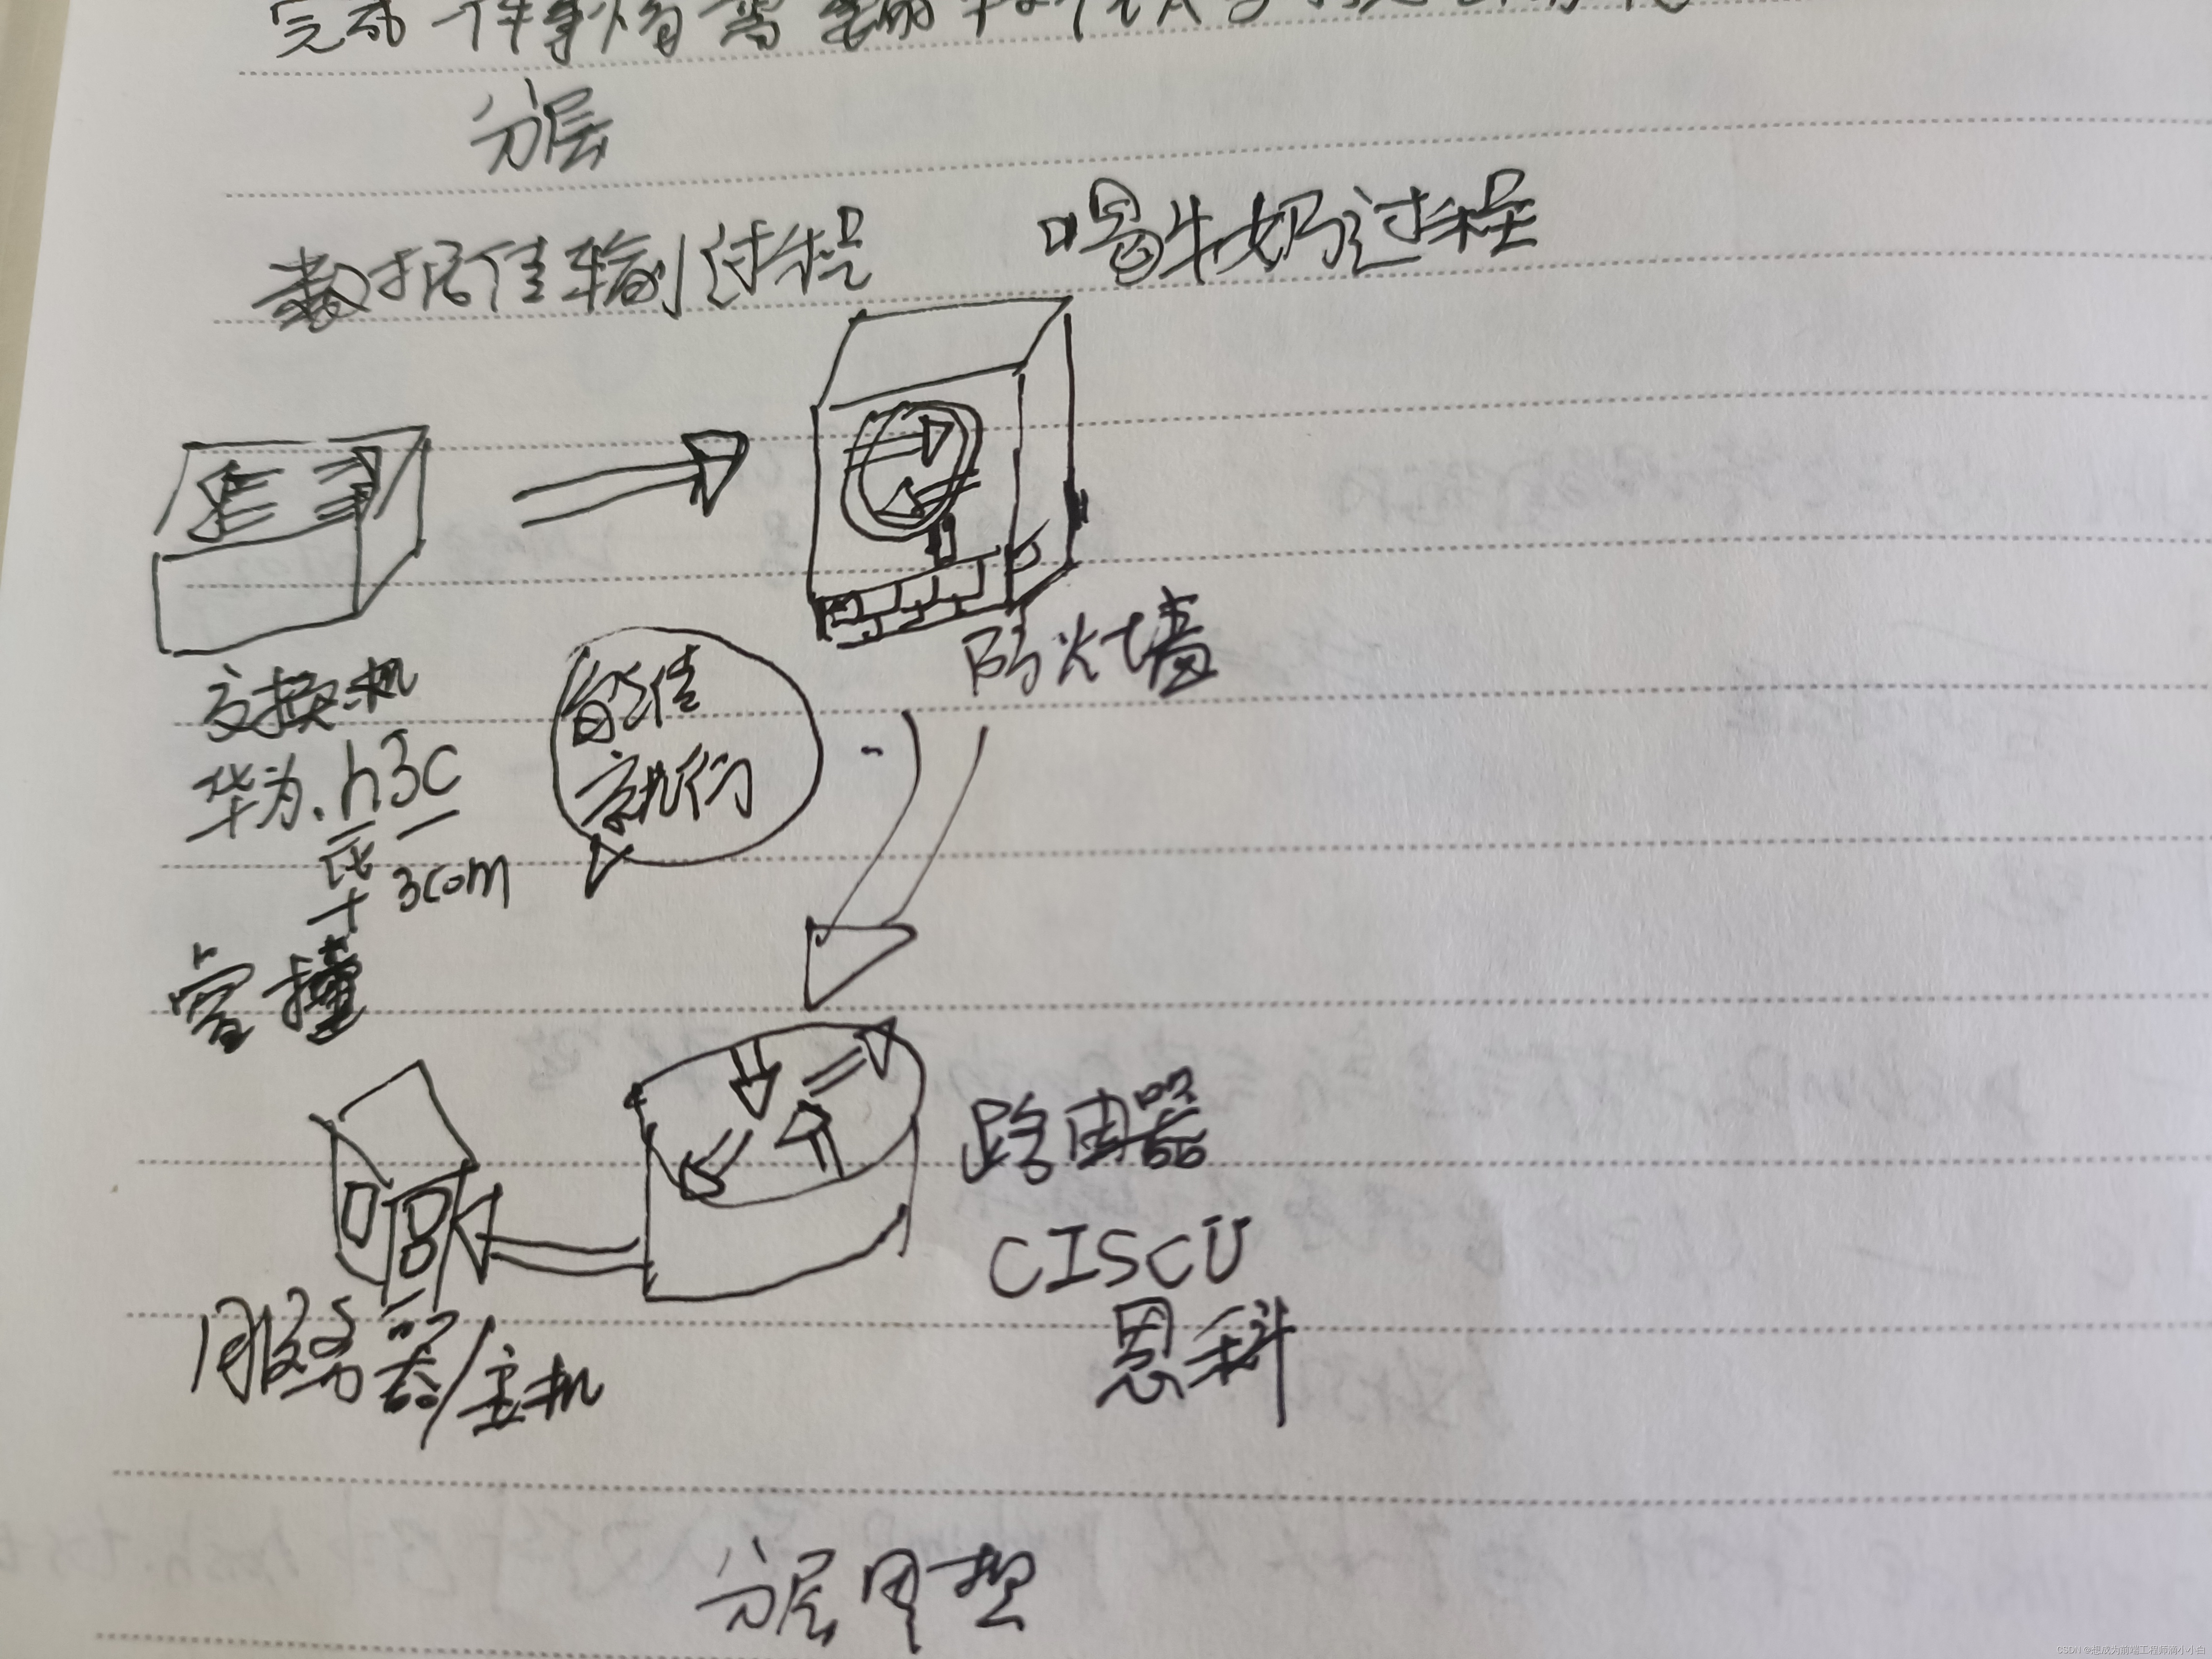 完成一件事情需要
分层
数据传输过程
喝牛奶过程
防火墙
交换机
能传
就行
华为.h3c
华
3com
路由器
CISCU
思科
服务器/主机
分层
CSDN @想成为前端工程师滴小小白